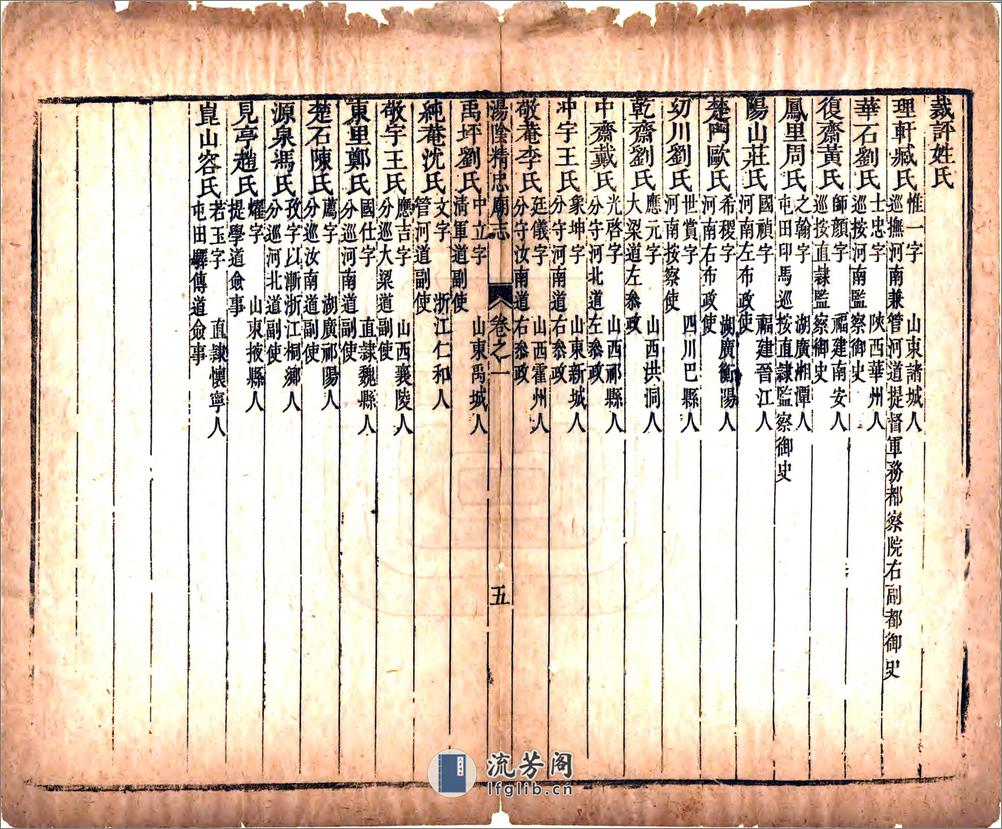 裁評姓氏
理軒臧氏 惟一字 山東諸城人
巡撫河南兼管河道提督軍務都察院右副都御史
華石劉氏 士忠字 陝西華州人
巡按河南監察御史
復齋黃氏 師顏字 福建南安人
巡按直隷監察御史
鳳里周氏 之翰字 湖廣湘潭人
屯田印馬巡按直隷監察御史
陽山莊氏 國禎字 福建晉江人
河南左布政使
楚門歐氏 希稷字 湖廣衡陽人
河南右布政使
幼川劉氏 世賞字 四川巴縣人
河南按察使
乾齋劉氏 應元字 山西洪洞人
大梁道左叅政
中齋戴氏 光啓字 山西祁縣人
分守河北道左叅政
冲宇王氏 象坤字 山東新城人
分守河南道右叅政
敬菴李氏 廷儀字 山西霍州人
分守汝南道右叅政
湯陰精忠廟志 卷之一 五
禹坪劉氏 中立字 山東禹城人
清軍道副使
純菴沈氏 文字 浙江仁和人
管河道副使
敬宇王氏 應吉字 山西襄陵人
分巡大梁道副使
東里鄭氏 國仕字 直隷魏縣人
分巡河南道副使
楚石陳氏 薦字 湖廣祁陽人
分巡汝南道副使
源泉馮氏 孜字以漸浙江桐鄉人
分巡河北道副使
見亭趙氏 燿字 山東掖縣人
提學道僉事
崑山容氏 若玉字 直隷懷寧人
屯田驛傳道僉事
流芳阁
lfglib.cn